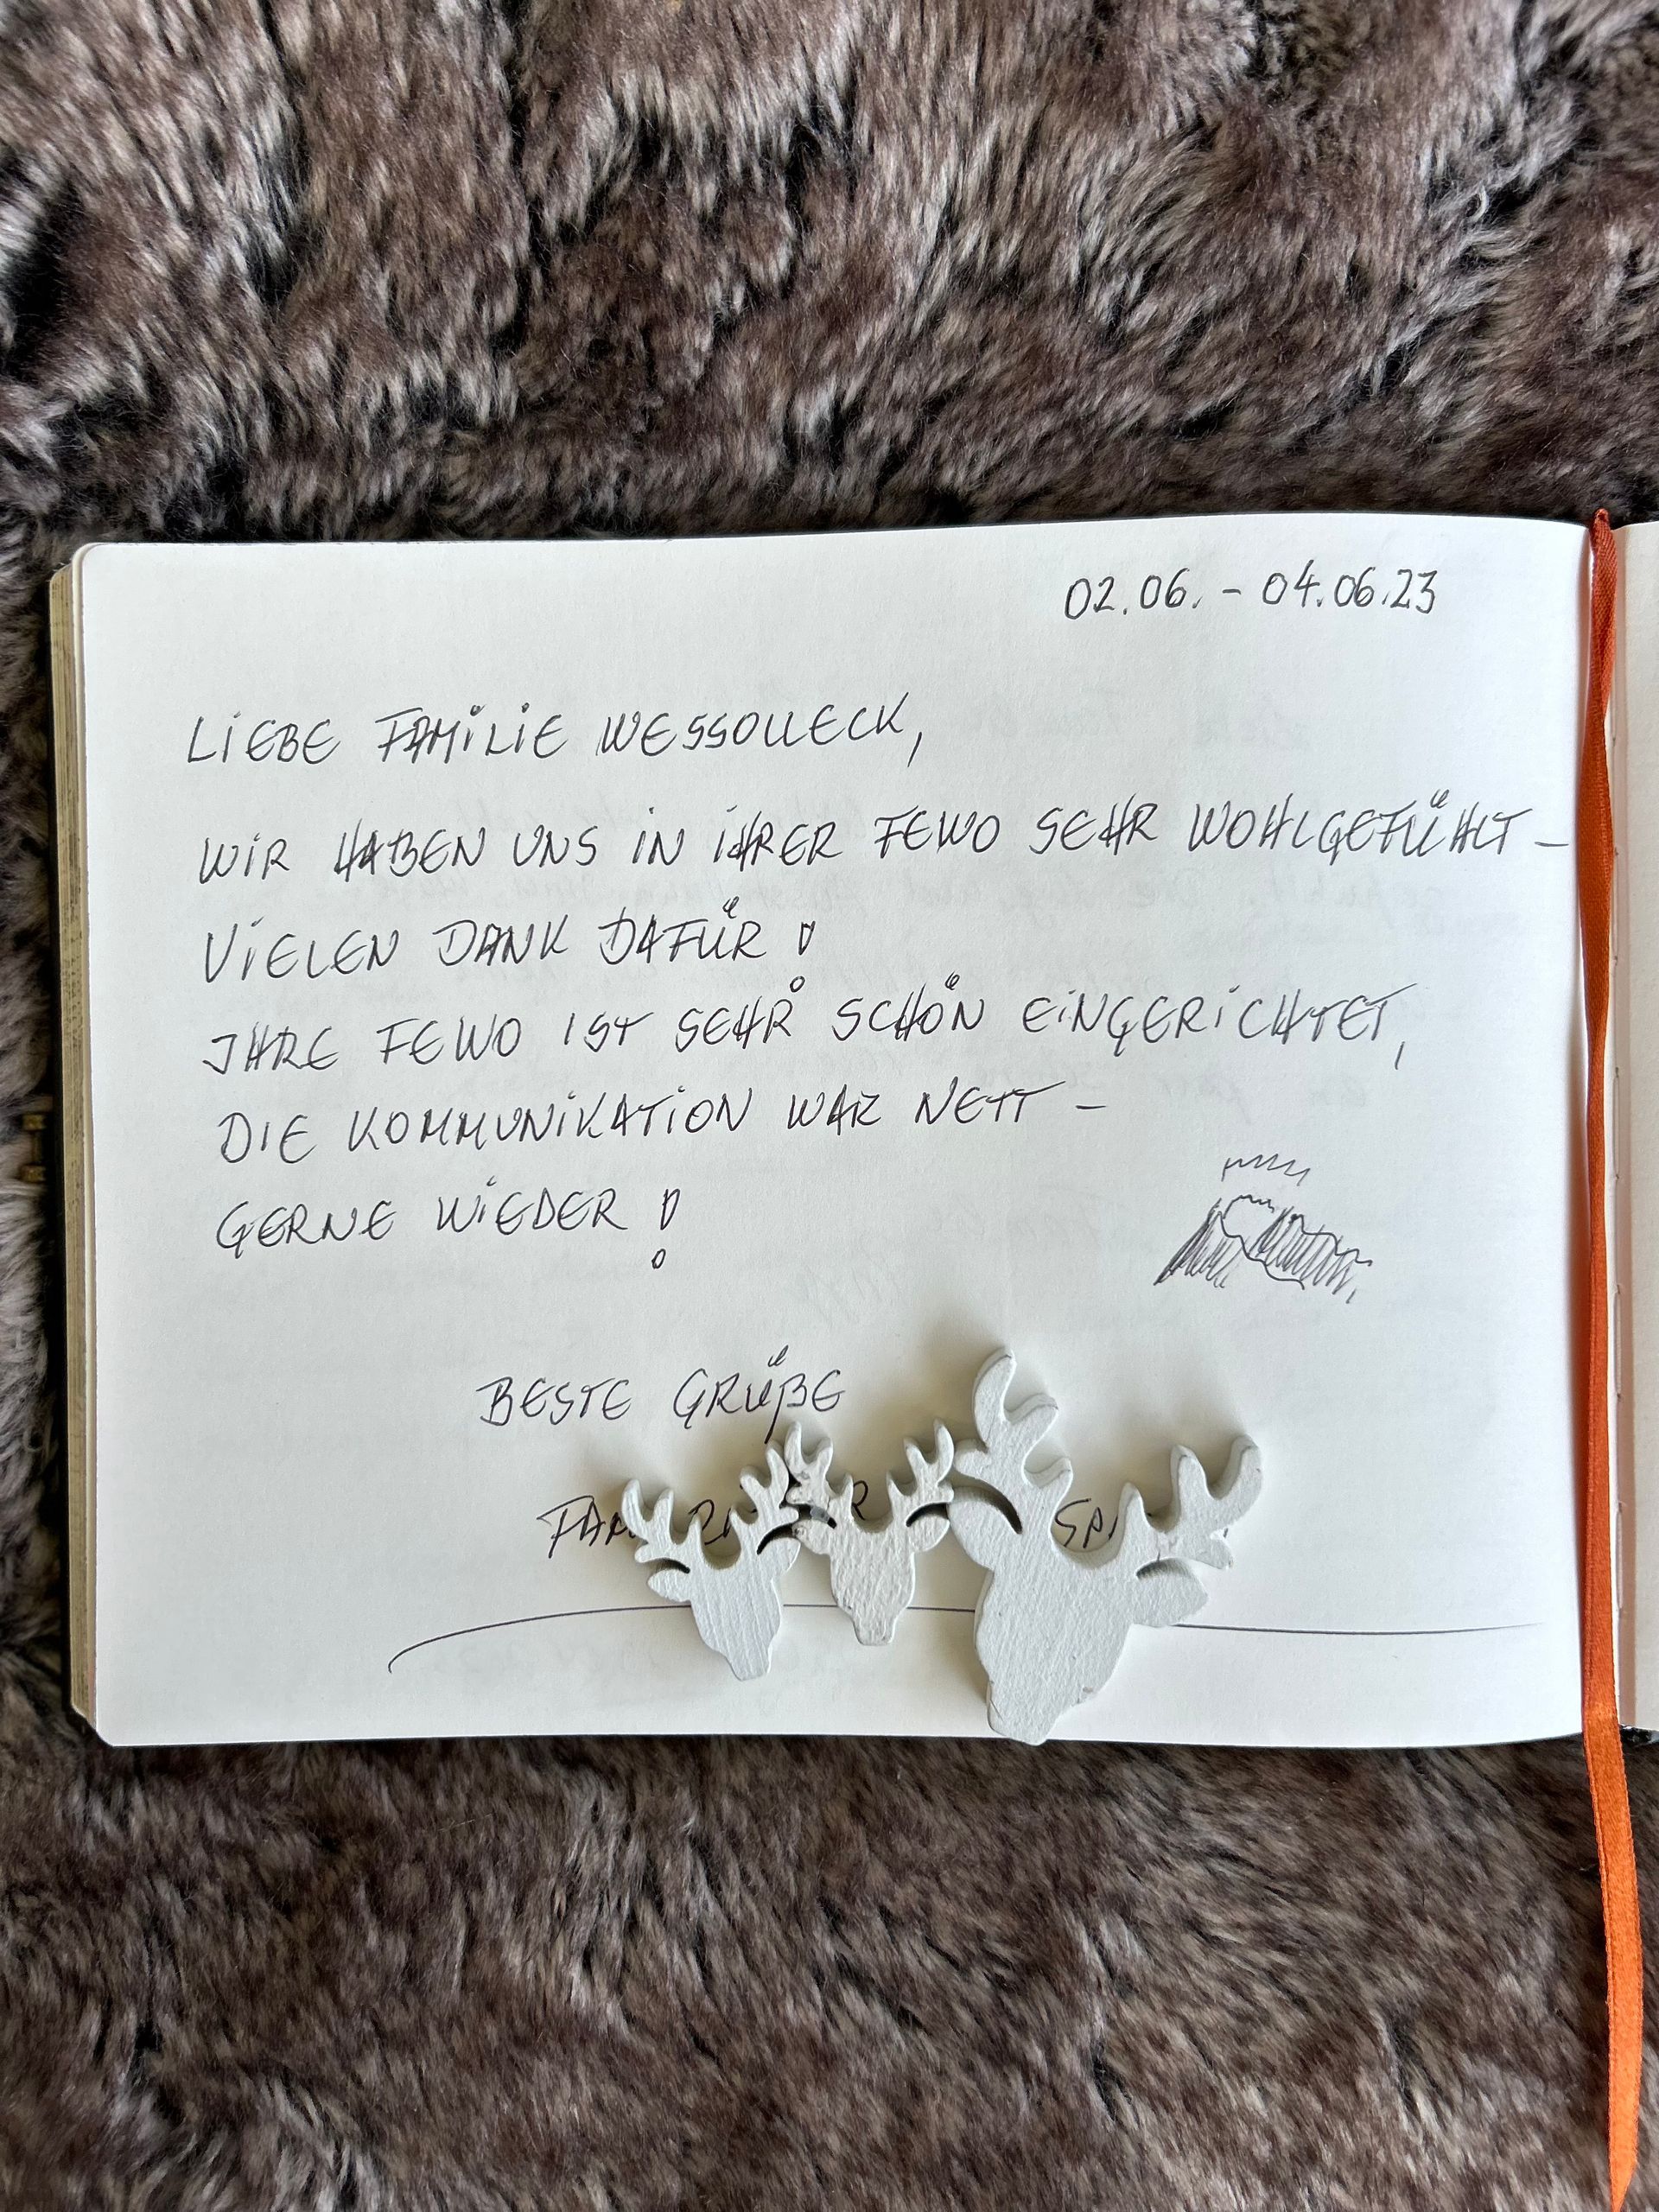 02.06. - 04.06.23
LIEBE FAMILIE WESSOLLECK,
WIR HABEN UNS IN IHRER FEWO SEHR WOHLGEFÜHLT –
VIELEN DANK DAFÜR!
IHRE FEWO IST SEHR SCHÖN EINGERICHTET,
DIE KOMMUNIKATION WAR NETT –
GERNE WIEDER!
BESTE GRÜßE